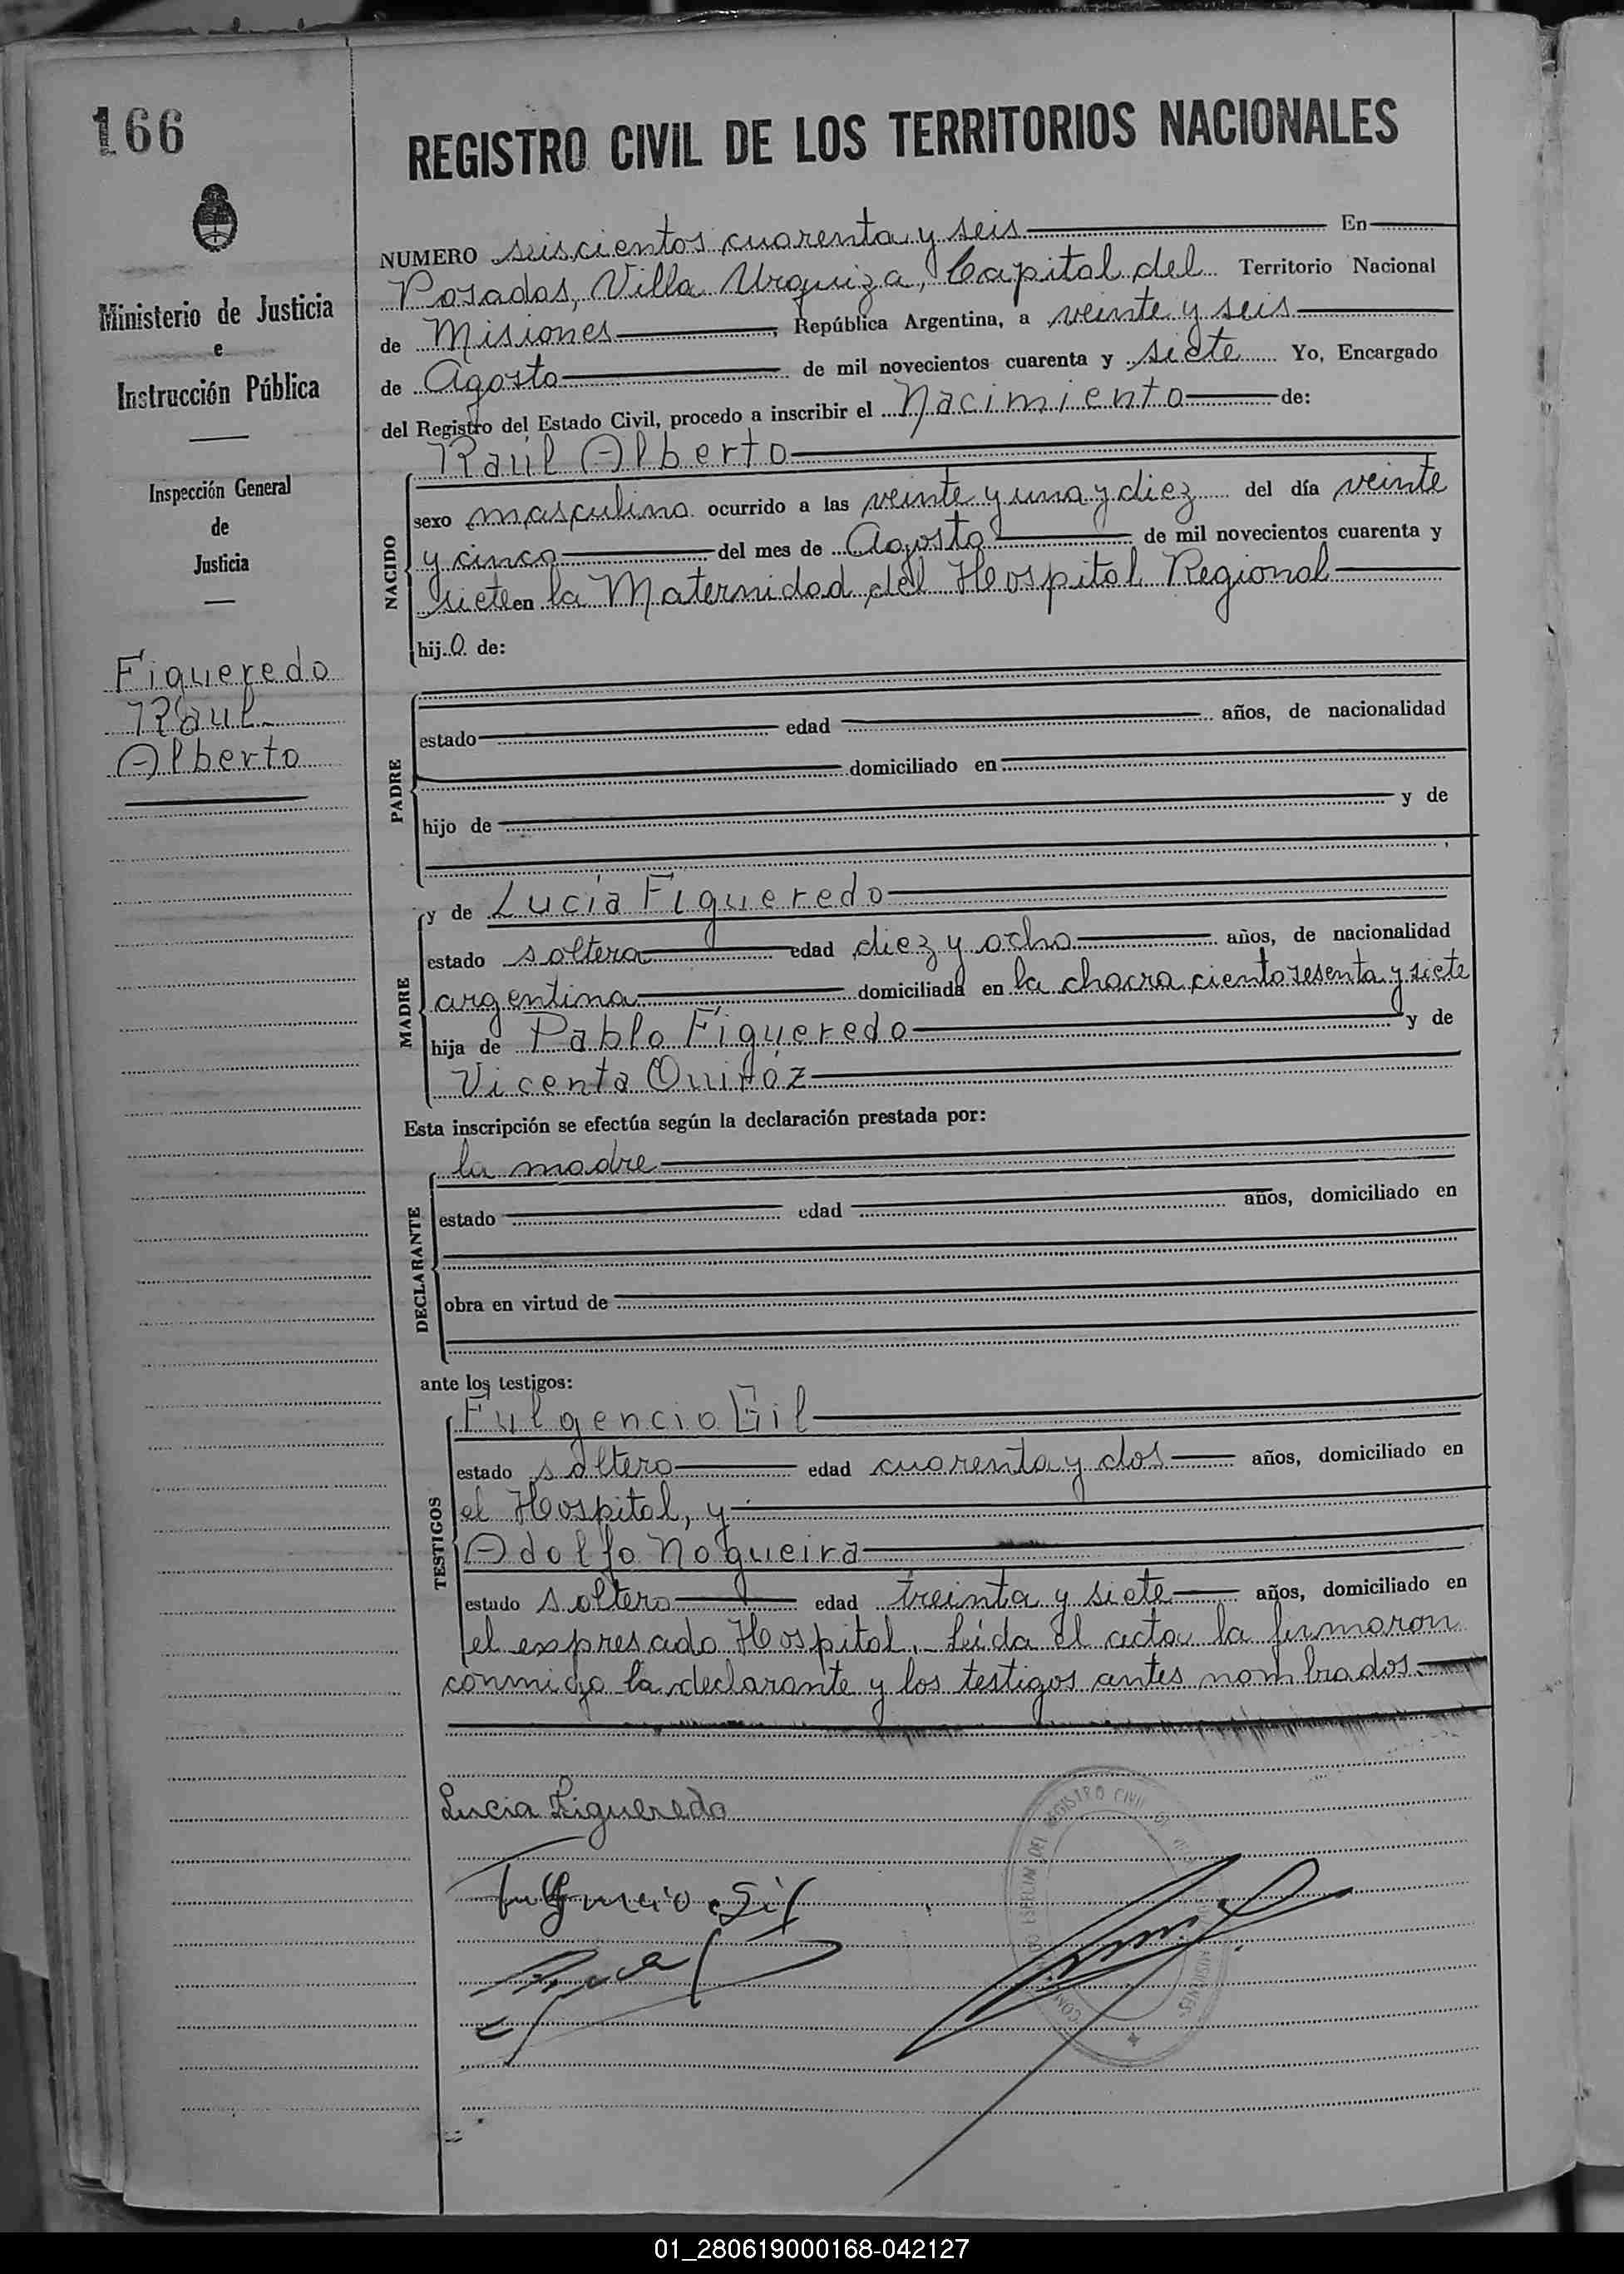 166
REGISTRO CIVIL DE LOS TERRITORIOS NACIONALES
Ministerio de Justicia
e
Instrucción Pública
Inspección General
de
Justicia
Figueredo
Raul
Alberto
NUMERO seiscientos cuarenta y seis En
Posadas, Villa Urquiza, Capital del Territorio Nacional
de Misiones, República Argentina, a veinte y seis
de Agosto de mil novecientos cuarenta y siete Yo, Encargado
del Registro del Estado Civil, procedo a inscribir el Nacimiento de:
Raúl Alberto
NACIDO
sexo masculino ocurrido a las veinte y una y diez del día veinte
y cinco del mes de Agosto de mil novecientos cuarenta y
siete en la Maternidad del Hospital Regional
hijo de:
PADRE
estado edad años, de nacionalidad
domiciliado en
hijo de y de
MADRE
y de Lucía Figueredo
estado soltera edad diez y ocho años, de nacionalidad
argentina domiciliada en la chacra ciento sesenta y siete
hija de Pablo Figueredo y de
Vicenta Quiñóz
Esta inscripción se efectúa según la declaración prestada por:
la madre
DECLARANTE
estado edad años, domiciliado en
obra en virtud de
ante los testigos:
TESTIGOS
Fulgencio Gil
estado soltero edad cuarenta y dos años, domiciliado en
el Hospital, y
Adolfo Nogueira
estado soltero edad treinta y siete años, domiciliado en
el expresado Hospital. Leída el acta la firmaron
conmigo la declarante y los testigos antes nombrados.
Lucia Figueredo
Fulgencio Gil
REGISTRO CIVIL
01_280619000168-042127